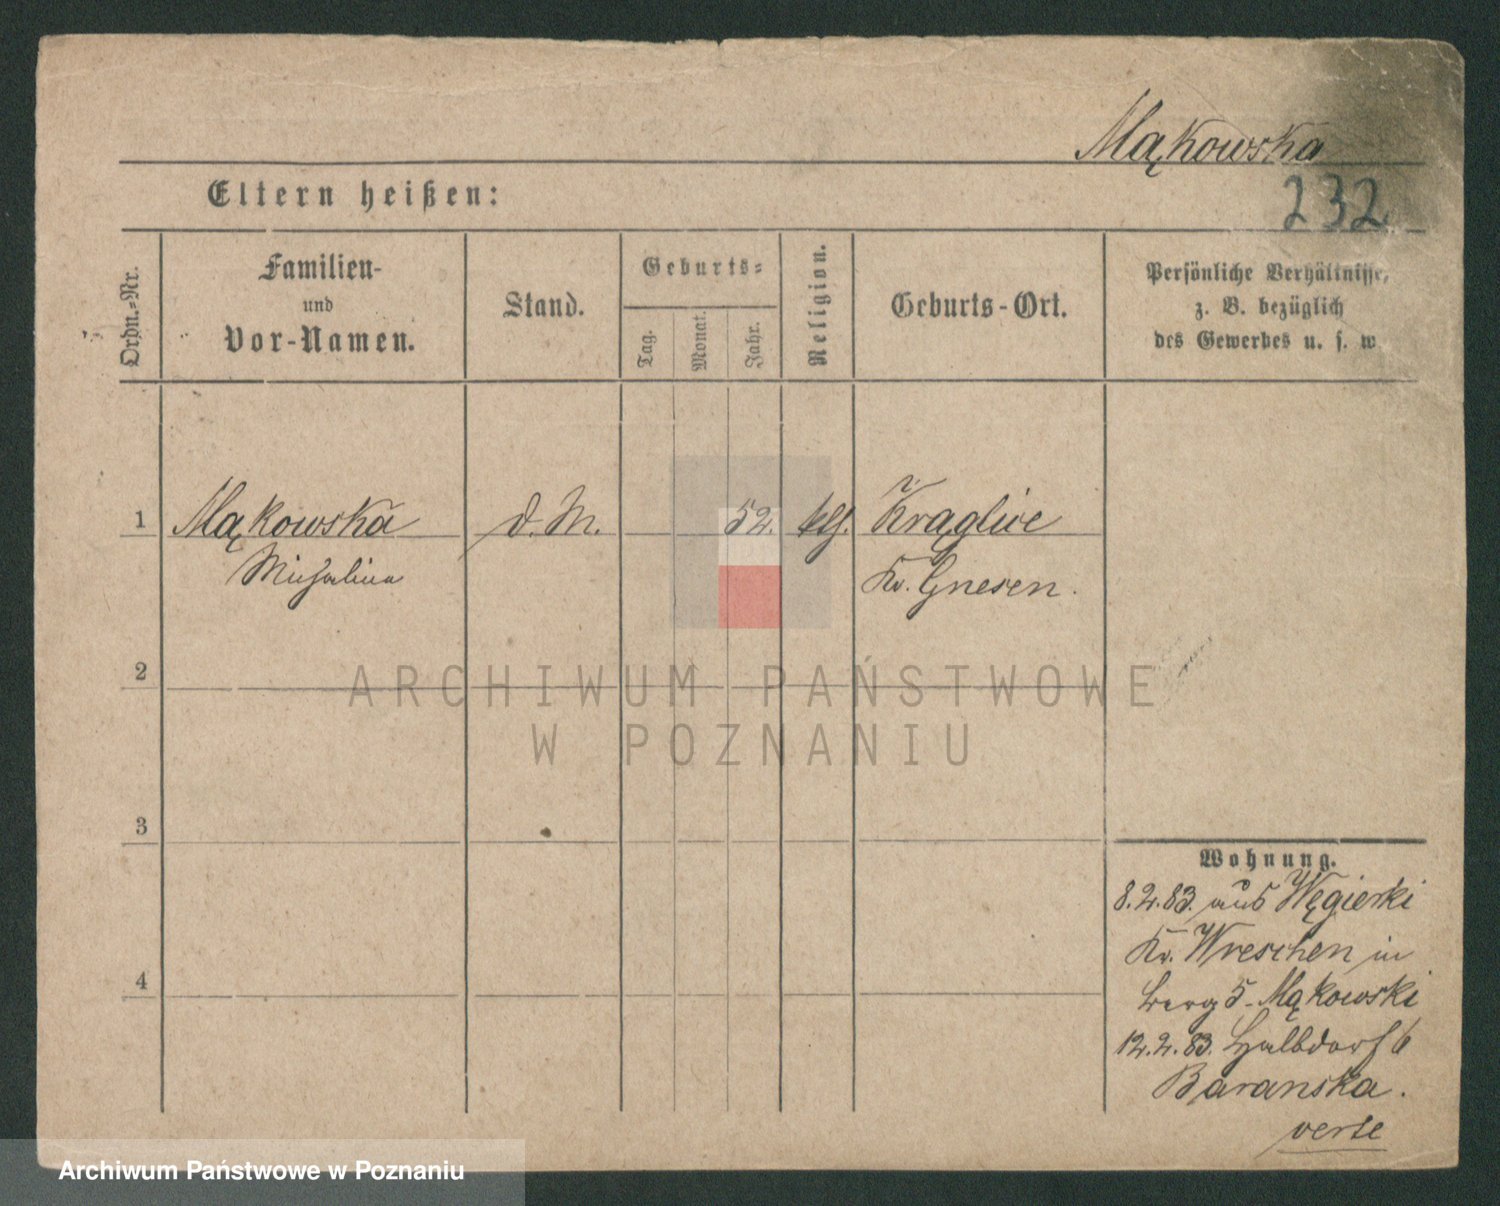 Mąkowska
Eltern heißen:
232.
Ordn.-Nr.
Familien-
und
Vor-Namen.
Stand.
Geburts-
Tag.
Monat.
Jahr.
Religion.
Geburts-Ort.
Persönliche Verhältnisse,
z. B. bezüglich
des Gewerbes u. s. w.
1 Mąkowska d. M. 52. klg. Krąglice
Michalina Kr. Gnesen.
2
ARCHIWUM PAŃSTWOWE
W POZNANIU
3
Wohnung.
8.2.83. aus Węgierki
Kr. Wreschen in
4
berg 5 - Mąkowski
12.2.83. Halbdorf 6
Baranska.
verte
Archiwum Państwowe w Poznaniu